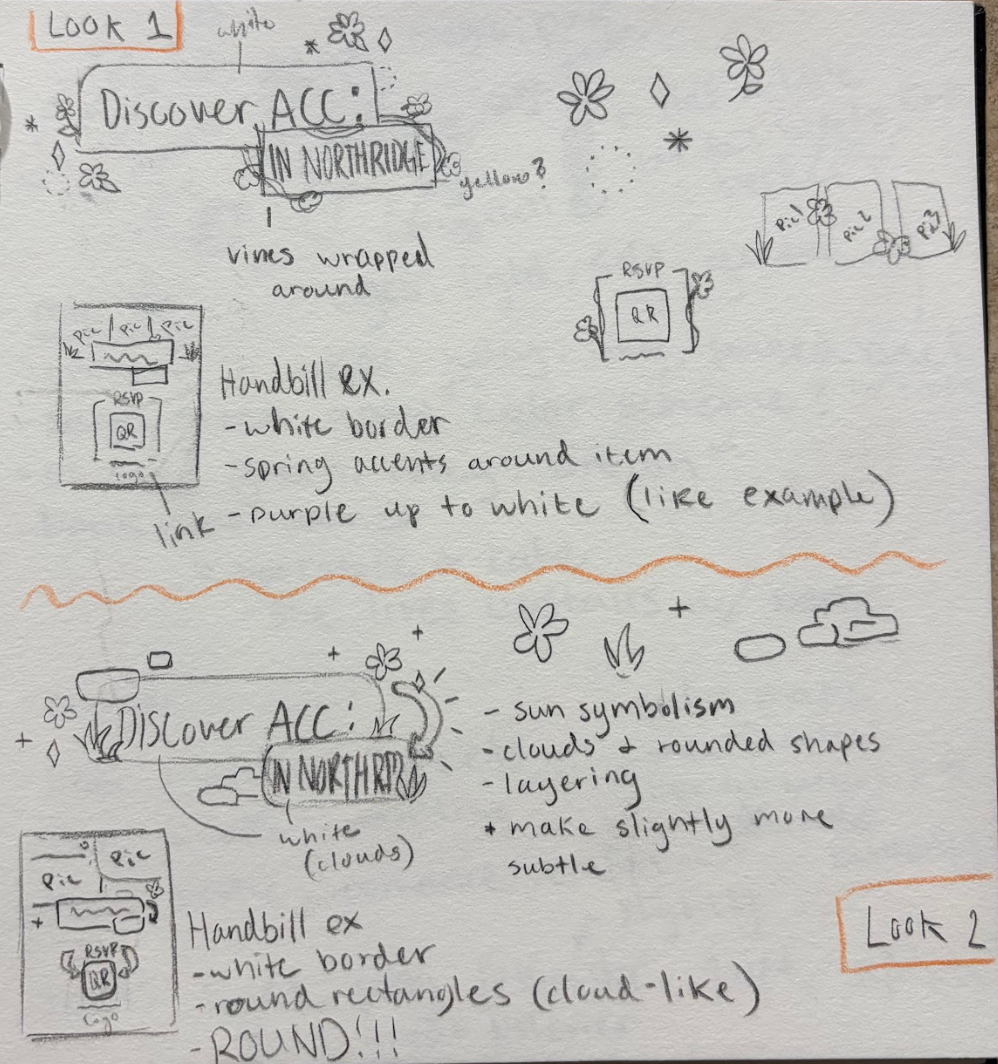 LOOK 1
white
Discover ACC:
IN NORTHRIDGE
yellow?
vines wrapped
around
Pic 1
Pic 2
Pic 3
RSVP
QR
Pic / Pic / Pic
RSVP
QR
logo
link
Handbill ex.
- white border
- spring accents around item
- purple up to white (like example)
Discover ACC:
IN NORTHRI
white
(clouds)
- sun symbolism
- clouds & rounded shapes
- layering
* make slightly more
subtle
Pic
Pic
RSVP
QR
logo
Handbill ex
- white border
- round rectangles (cloud-like)
- ROUND!!!
Look 2